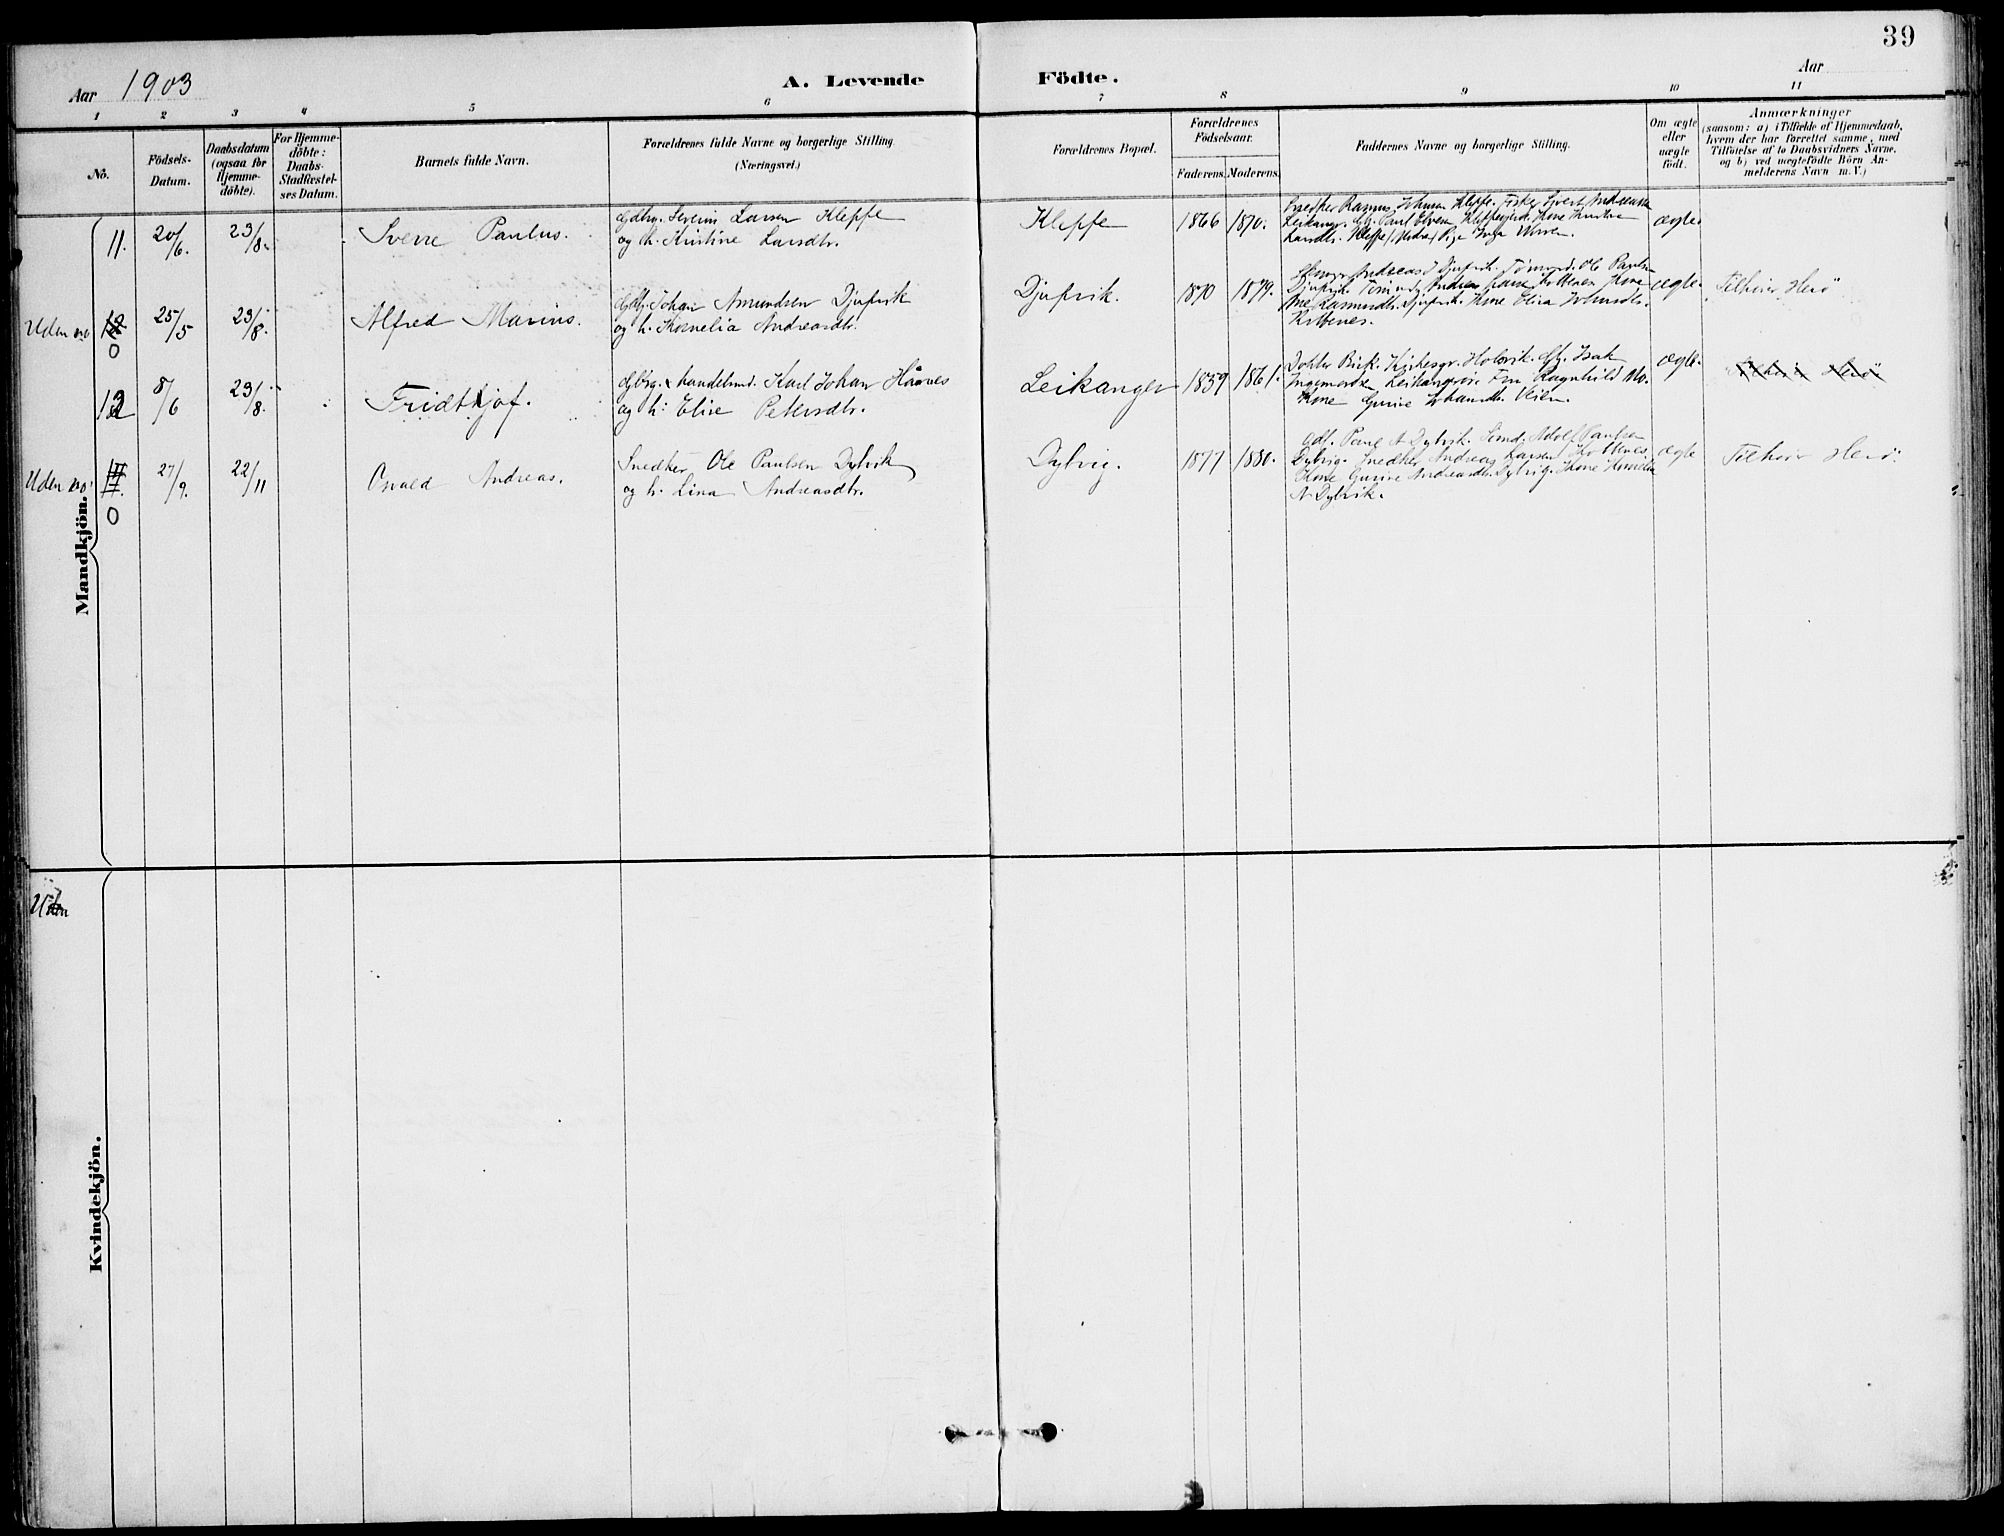 39
Aar 1903
A. Levende Födte.
Aar
1 2 3 4 5 6 7 8 9 10 11
No.
Födsels-
Datum.
Daabsdatum
(ogsaa for
Hjemme-
döbte).
For Hjemme-
döbte:
Daabs-
Stadfæstel-
ses Datum.
Barnets fulde Navn.
Forældrenes fulde Navne og borgerlige Stilling
(Næringsvei.)
Forældrenes Bopæl.
Forældrenes
Födselsaar.
Faderens. Moderens.
Faddernes Navne og borgerlige Stilling.
Om ægte
eller
uægte
födt.
Anmærkninger
(saasom: a) i Tilfælde af Hjemmedaab,
hvem der har forrettet samme, med
Tilföielse af to Daabsvidners Navne,
og b) ved uægtefödte Börn An-
melderens Navn m. V.)
Mandkjön.
11. 20/6. 23/8. Sverre Paulus.
Gdbrg. Severin Larsen Kleppe
og h. Kristine Larsdtr.
Kleppe 1866 1870.
Snedker Rasmus Johnsen Kleppe. Fisker Sivert Andreassen
Leikanger. Gbr. Paul Kleppe
Larsdtr. Kleppe Pige Inga
ægte.
Uden no 12 0 25/5 23/8. Alfred Marinus.
Gdbr. Johan Amundsen Djupvik
og h. Kornelia Andreasdtr.
Djupvik. 1870 1879.
Andreas J Djupvik. Tömmerm. Ole Paulsen
Djupvik. Andreas Larsen Kottenes Kone
Ane Rasmusdtr. Djupvik. Kone Elisa Johnsdtr.
Kottenes.
ægte. Tilhörer Herö
12 8/6 23/8. Fridtkjof.
Gbrg. & handelsmd. Karl Johan Håvnes
og h: Elise Petersdtr.
Leikanger 1859 1861.
Dokter Birk. Kirkesgr. Holsvik. Gbr. Isak
Ingemardsen Leikanger. Fru Ragnhild Mo.
Kone Gurine Johansdtr. Veien.
ægte. Tilhörer Herö
Uden no: 0 27/9. 22/11 Osvald Andreas.
Snedker Ole Paulsen Dybvik
og h. Lina Andreasdtr.
Dybvig. 1877 1880.
Gdbr. Paul A Dybvik. Adolf Paulsen
Dybvig. Snedker Andreas Larsen Kottenes.
Kone Gurine Andreasdtr. Dybvig. Kone Kornelia
A Dybvik.
ægte Tilhörer Herö.
Uden
Kvindekjön.